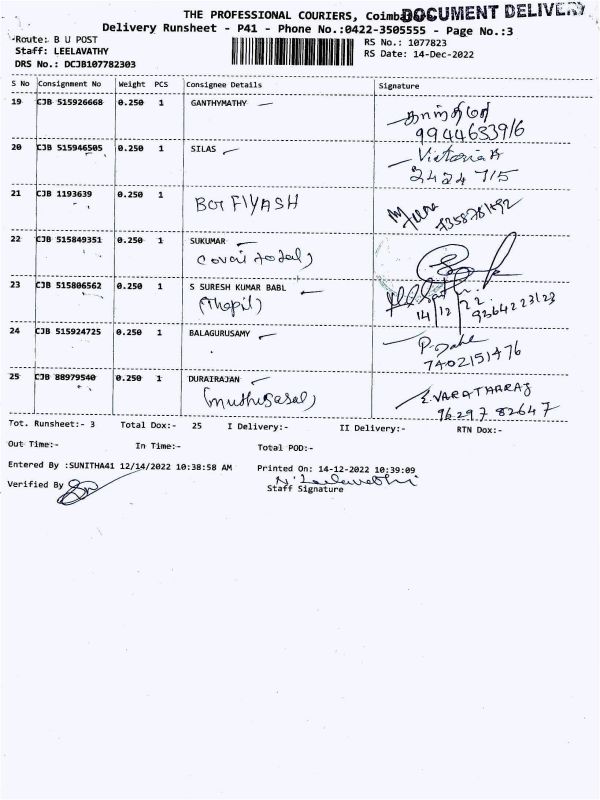 THE PROFESSIONAL COURIERS, Coimb
DOCUMENT DELIVERY
Delivery Runsheet - P41 - Phone No.:0422-3505555 - Page No.:3
Route: B U POST
RS No.: 1077823
Staff: LEELAVATHY
RS Date: 14-Dec-2022
DRS No.: DCJB107782303
S No Consignment No Weight PCS Consignee Details Signature
19 CJB 515926668 0.250 1 GANTHYMATHY
9944633916
20 CJB 515946505 0.250 1 SILAS Victoria
2424 715
21 CJB 1193639 0.250 1 BOT FIYASH
22 CJB 515849351 0.250 1 SUKUMAR
23 CJB 515806562 0.250 1 S SURESH KUMAR BABL
14/12/22
9364223123
24 CJB 515924725 0.250 1 BALAGURUSAMY
7402151476
25 CJB 88979540 0.250 1 DURAIRAJAN E.VARATHARAJ
96297 82647
Tot. Runsheet:- 3 Total Dox:- 25 I Delivery:- II Delivery:- RTN Dox:-
Out Time:- In Time:- Total POD:-
Entered By :SUNITHA41 12/14/2022 10:38:58 AM Printed On: 14-12-2022 10:39:09
Verified By
Staff Signature